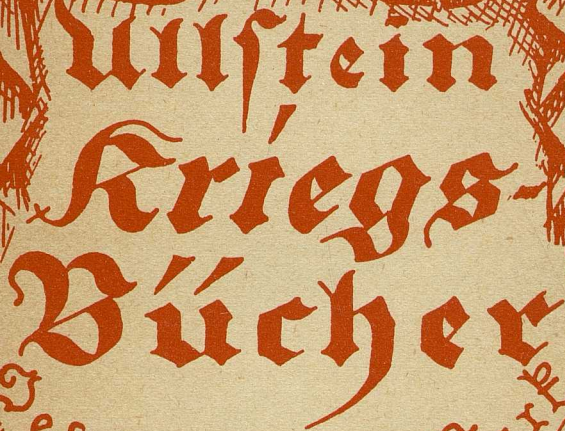 Ullstein
Kriegs-
Bücher